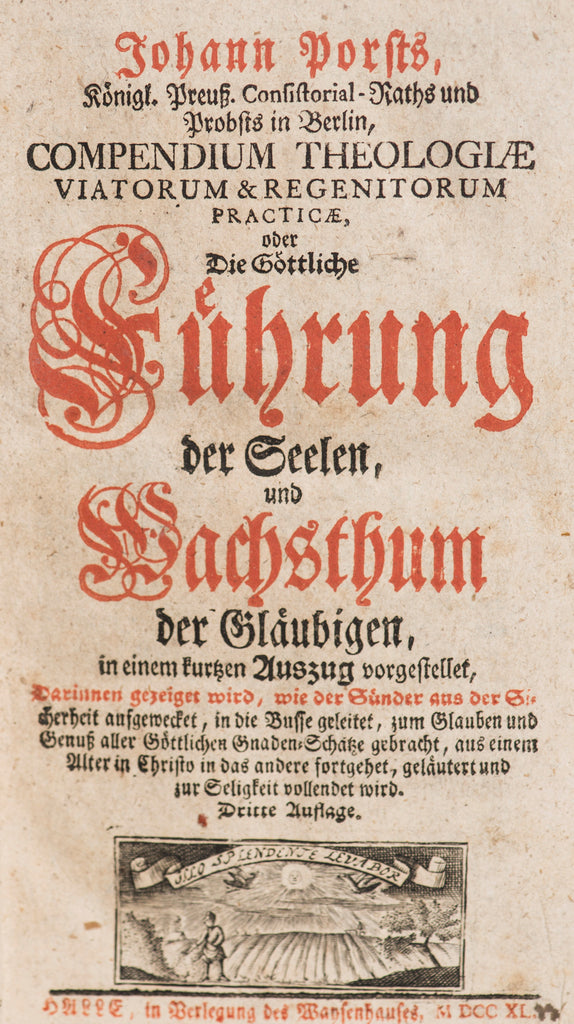 Johann Porſts,
Königl. Preuß. Conſiſtorial-Raths und
Probſts in Berlin,
COMPENDIUM THEOLOGIÆ
VIATORUM & REGENITORUM
PRACTICÆ,
oder
Die Göttliche
Fuͤhrung
der Seelen,
und
Wachsthum
der Gläubigen,
in einem kurtzen Auszug vorgeſtellet,
Darinnen gezeiget wird, wie der Sünder aus der Si-
cherheit aufgewecket, in die Buſſe geleitet, zum Glauben und
Genuß aller Göttlichen Gnaden-Schätze gebracht, aus einem
Alter in Chriſto in das andere fortgehet, geläutert und
zur Seligkeit vollendet wird.
Dritte Auflage.
SPLENDENTE LEVABOR
HALLE, in Verlegung des Wayſenhauſes, M DCC XL.